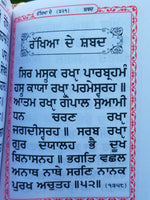 ਦਖਿ ਦੇ (੩੨੧) ਸ਼ਬਦ
ਰੱਖਿਆ ਦੇ ਸ਼ਬਦ
ਸਿਰ ਮਸ੍ਤਕ ਰਖ੍ਯਾ ਪਾਰਬ੍ਰਹਮੰ
ਹਸ੍ਤ ਕਾਯਾ ਰਖ੍ਯਾ ਪਰਮੇਸ੍ਵਰਹ ॥
ਆਤਮ ਰਖ੍ਯਾ ਗੋਪਾਲ ਸੁਆਮੀ
ਧਨ ਚਰਣ ਰਖ੍ਯਾ
ਜਗਦੀਸ੍ਵਰਹ ॥ ਸਰਬ ਰਖ੍ਯਾ
ਗੁਰ ਦਯਾਲਹ ਭੈ ਦੂਖ
ਬਿਨਾਸਨਹ ॥ ਭਗਤਿ ਵਛਲ
ਅਨਾਥ ਨਾਥੇ ਸਰਣਿ ਨਾਨਕ
ਪੁਰਖ ਅਚੁਤਹ ॥੫੨॥ (੧੩੫੮)